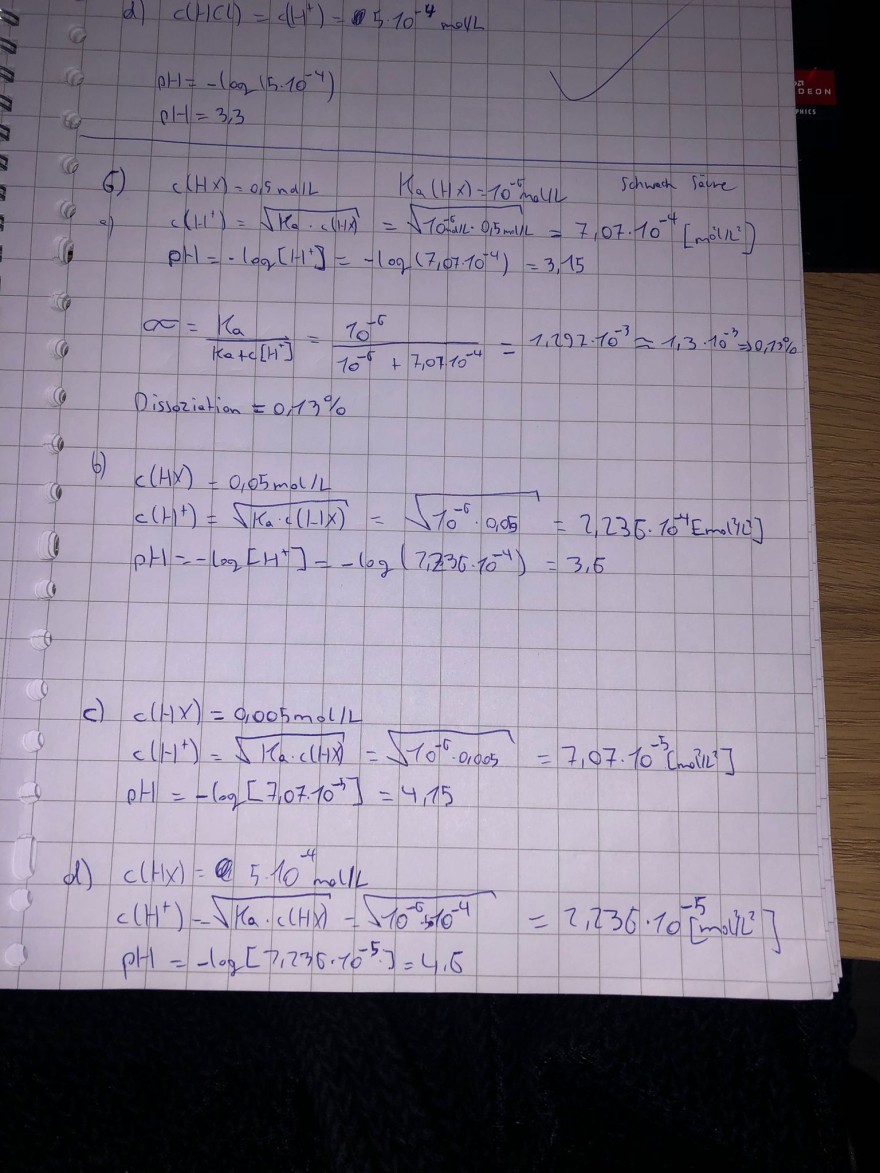 d) c(HCl) = c(H⁺) = 5·10⁻⁴ mol/L
pH = -log(5·10⁻⁴)
pH = 3,3
DEON
PHICS
6) c(HX) = 0,5 mol/L Ka(HX) = 10⁻⁶ mol/L Schwach Säure
a) c(H⁺) = √Ka · c(HX) = √10⁻⁶mol/L · 0,5mol/L = 7,07·10⁻⁴ [mol²/L²]
pH = -log[H⁺] = -log(7,07·10⁻⁴) = 3,15
∝ = Ka / Ka+c[H⁺] = 10⁻⁶ / 10⁻⁶ + 7,07·10⁻⁴ = 1,292·10⁻³ ≈ 1,3·10⁻³ ⇒ 0,13%
Dissoziation = 0,13%
b) c(HX) = 0,05 mol/L
c(H⁺) = √Ka·c(HX) = √10⁻⁶ · 0,05 = 2,236·10⁻⁴ [mol²/L²]
pH = -log[H⁺] = -log(2,236·10⁻⁴) = 3,6
c) c(HX) = 0,005 mol/L
c(H⁺) = √Ka·c(HX) = √10⁻⁶·0,005 = 7,07·10⁻⁵ [mol²/L²]
pH = -log[7,07·10⁻⁵] = 4,15
d) c(HX) = 5·10⁻⁴ mol/L
c(H⁺) = √Ka·c(HX) = √10⁻⁶·5·10⁻⁴ = 2,236·10⁻⁵ [mol²/L²]
pH = -log[2,236·10⁻⁵] = 4,6